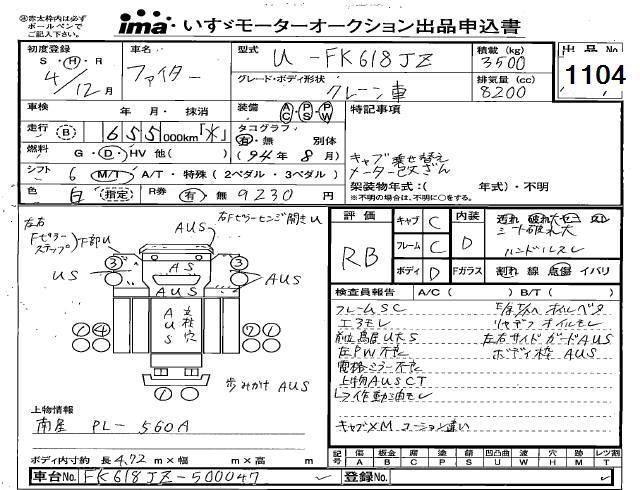 ④赤太枠内は必ず
ボールペンで
ご記入下さい。
ima いすゞモーターオークション出品申込書
初度登録
S・H・R
4/12月
車名
ファイター
型式
U-FK618JZ
グレード・ボディ形状
クレーン車
積載(kg)
3500
排気量(cc)
8200
出品No
1104
車検 年 月・抹消
装備 AC PS PW
特記事項
走行 B 655000km「*」
タコグラフ
有・無 別体
燃料 G・D・HV 他( )
(94年8月)
キャブ乗せ替え
メーター改ざん
シフト 6 M/T A/T・特殊(2ペダル・3ペダル)
架装物年式:( 年式)・不明
※不明の場合は、不明に○をする。
色 白 指定 R券 有 無 9230円
左右
Fピラー
ステップ 下部U
右Fピラーヒンジ開きU
AUS
US
AS
AUS
AUS
AUS
支柱穴
3
3
1 4
7 1
1
歩みがけAUS
評価
RB
キャブ C
フレーム C
ボディ D
内装 D
シート破れ大
ハンドルスレ
Fガラス 割れ 線 点傷 イバリ
検査員報告 A/C( ) B/T( )
フレームSC
エアモレ
左PW不良
電格ミラー不良
上物AUSCT
レフ作動油モレ
リヤデフ オイルモレ
左右サイドガードAUS
ボディ枠 AUS
キャブ×M コーション違い
上物情報
南星 PL-560A
ボディ内寸約 長4.72m×幅 m×高 m
記号 傷 板金 腐 塗 錆 凹凸曲 波 穴 跡 レツ割
A B C P S U W H M T
車台No. FK618JZ-500047
登録No.